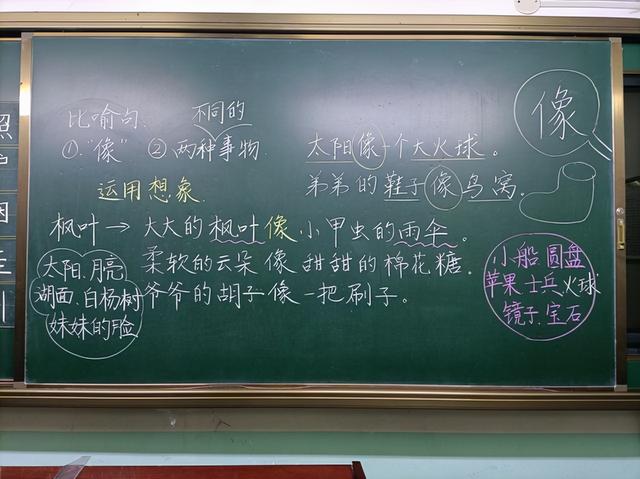 比喻句.
不同的
①."像" ②两种事物
运用想象.
太阳像一个大火球。
弟弟的鞋子像鸟窝。
像
枫叶→大大的枫叶像小甲虫的雨伞。
柔软的云朵像甜甜的棉花糖.
爷爷的胡子像一把刷子。
太阳.月亮
湖面.白杨树
妹妹的脸
小船 圆盘
苹果 士兵 火球
镜子.宝石